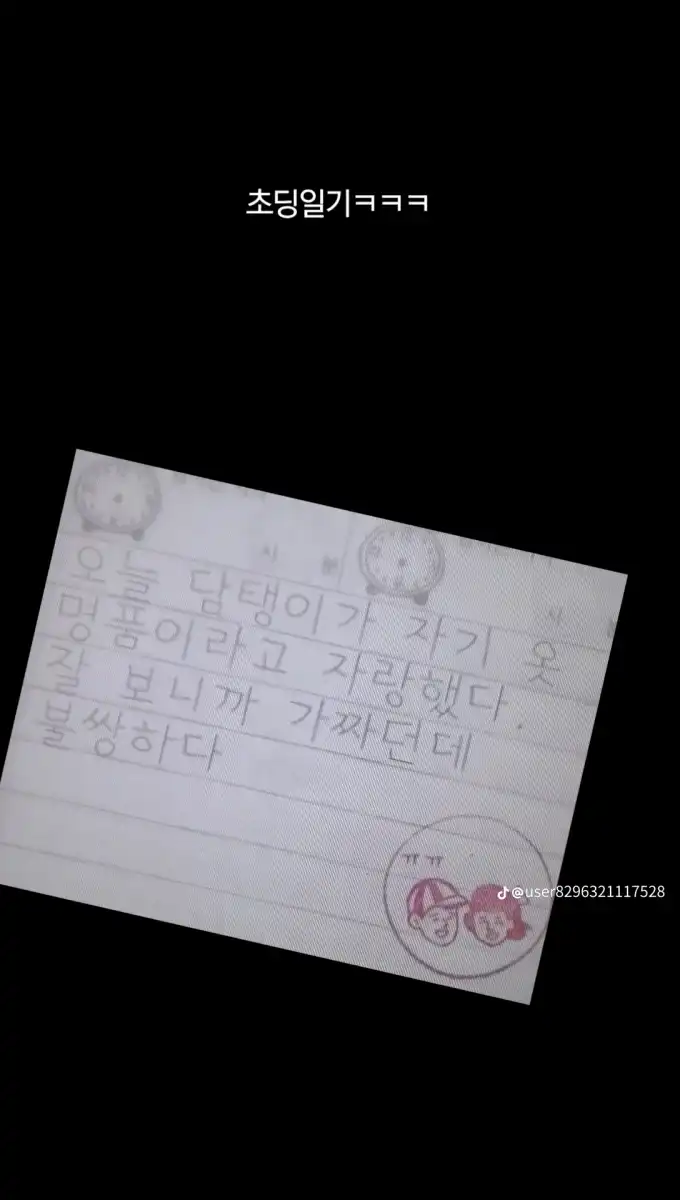 초딩일기ㅋㅋㅋ
오늘 담탱이가 자기 옷
멍품이라고 자랑했다.
잘 보니까 가짜던데
불쌍하다
ㅠㅠ
@user8296321117528